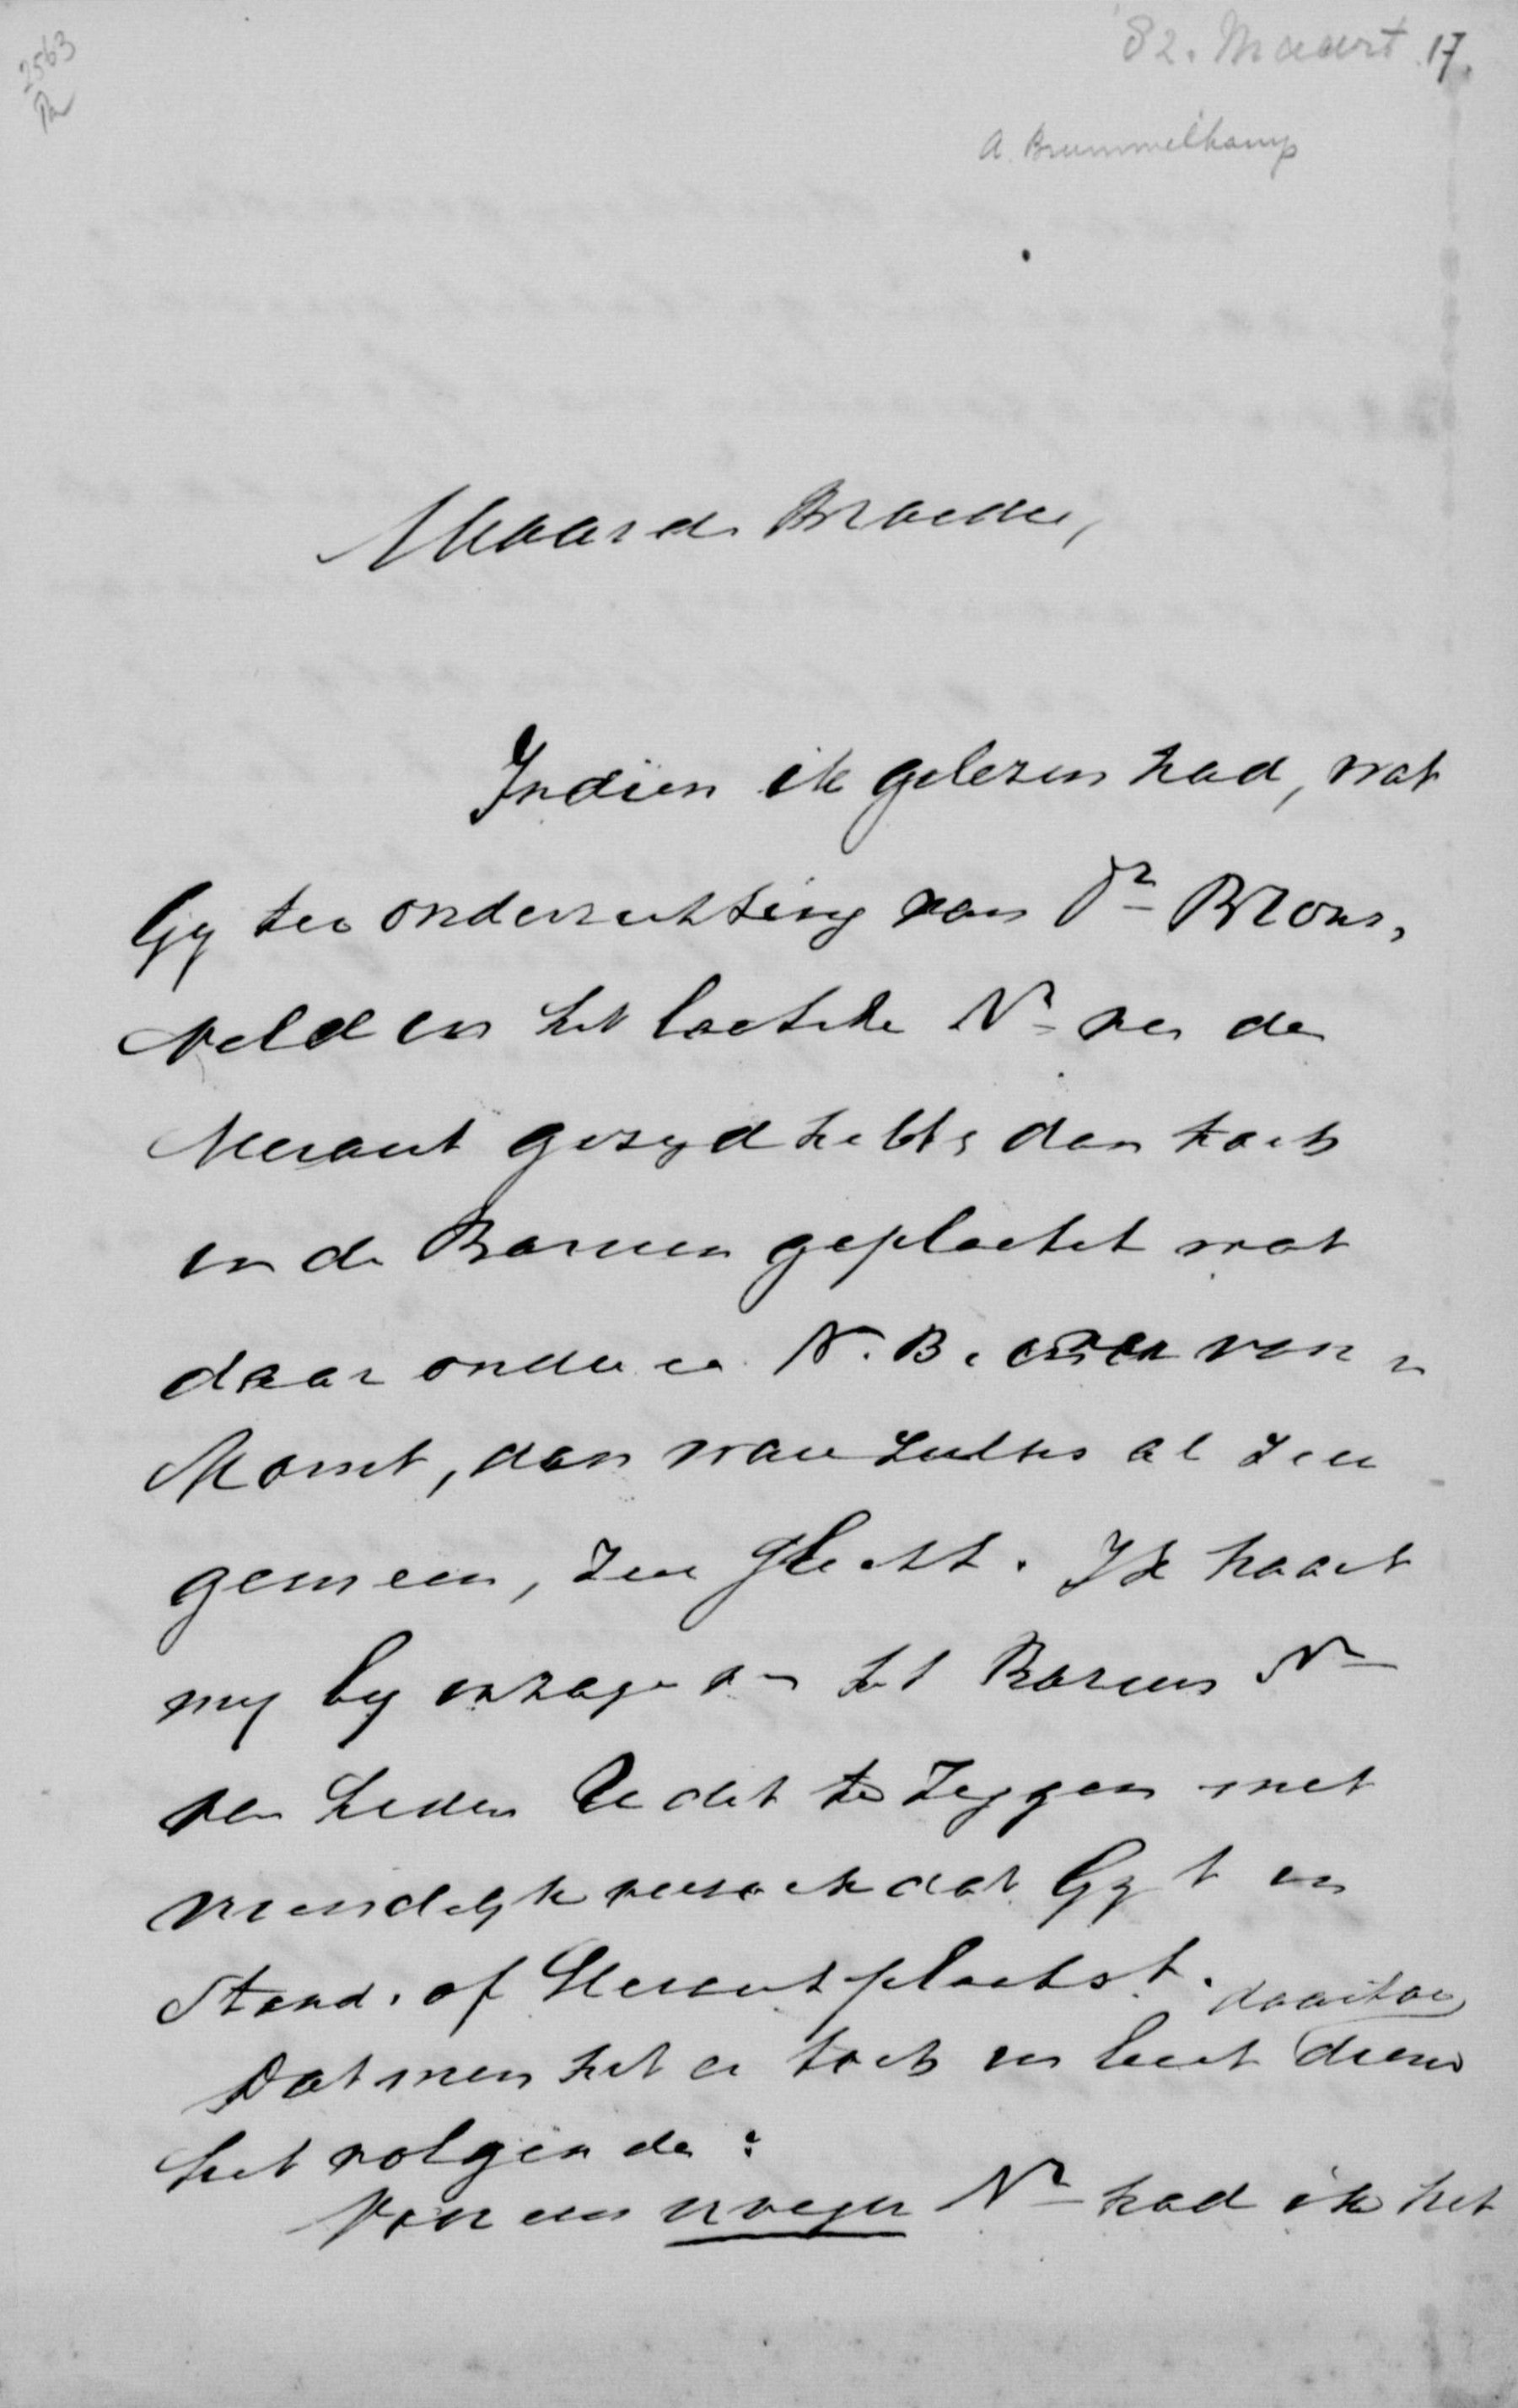 2563
'82. Maart 17.
A. Brummelkamp
Waarde Broeder,
Indien ik gelezen had, wat
Gy ter onderrichting van Dr Brons,
veld in het laatste Nr van de
Heraut gezegd hebt, dan toch
in de Bazuin geplaatst wat
daar onder N.B. voor
komt, dan ware zulks al zeer
gemeen, zeer slecht. Ik haast
my by inzage van het Bazuin Nr
van heden U dit te zeggen met
vriendelyk verzoek dat Gy 't in
Stand. of Heraut plaatst.
daartoe
Dat men het er toch in leest diene
het volgende:
Voor een vroeger Nr had ik het